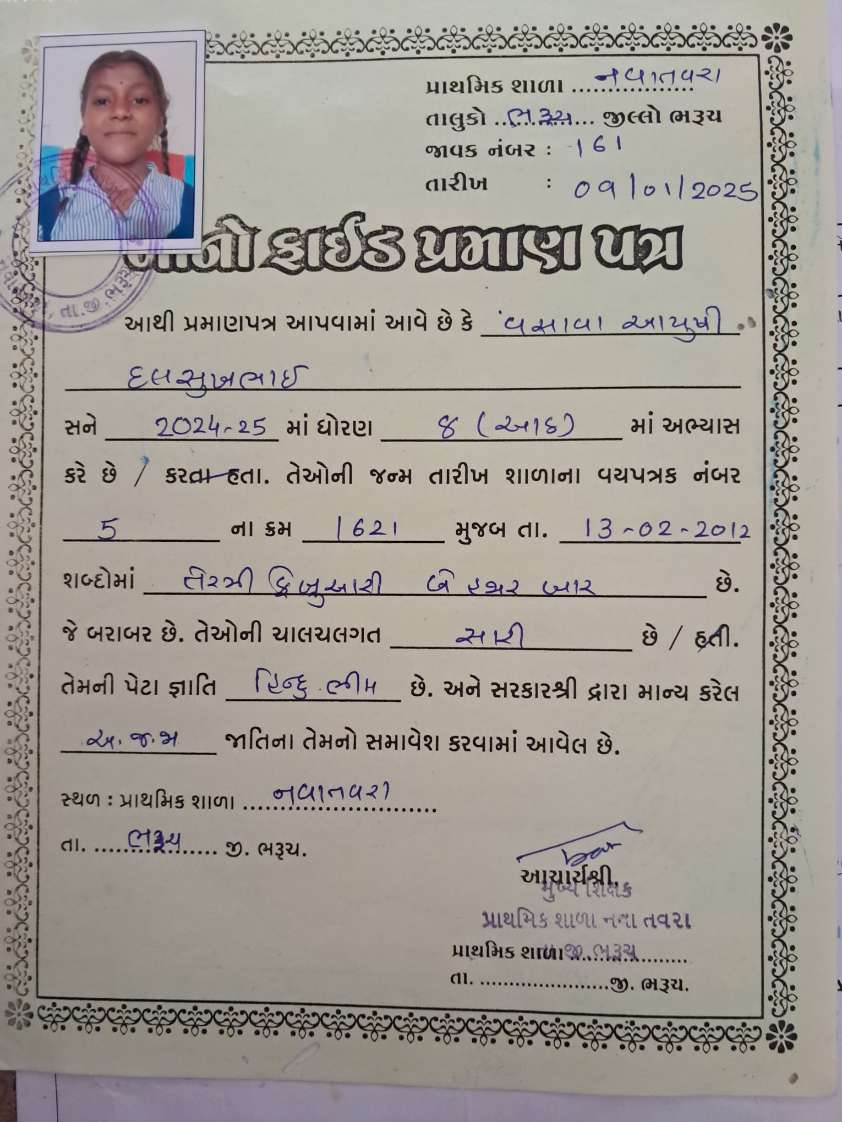 પ્રાથમિક શાળા નવાતવરા
તાલુકો ભરૂચ જીલ્લો ભરૂચ
જાવક નંબર : 161
તારીખ : 09/01/2025
બોનો ફાઈડ પ્રમાણ પત્ર
આથી પ્રમાણપત્ર આપવામાં આવે છે કે વસાવા આયુષી
દલસુખભાઈ
સને 2024-25 માં ધોરણ ૪ (આઠ) માં અભ્યાસ
કરે છે / કરતા હતા. તેઓની જન્મ તારીખ શાળાના વયપત્રક નંબર
5 ના ક્રમ 1621 મુજબ તા. 13-02-2012
શબ્દોમાં તેરમી ફેબ્રુઆરી બે હજાર બાર છે.
જે બરાબર છે. તેઓની ચાલચલગત સારી છે / હતી.
તેમની પેટા જ્ઞાતિ હિન્દુ ભીલ છે. અને સરકારશ્રી દ્વારા માન્ય કરેલ
અ.જ.જા જાતિના તેમનો સમાવેશ કરવામાં આવેલ છે.
સ્થળ : પ્રાથમિક શાળા નવાતવરા
તા. ભરૂચ જી. ભરૂચ.
આચાર્યશ્રી,
મુખ્ય શિક્ષક
પ્રાથમિક શાળા નવા તવરા
પ્રાથમિક શાળા તા.જી. ભરૂચ
તા. જી. ભરૂચ.
તા.જી.ભરૂચ